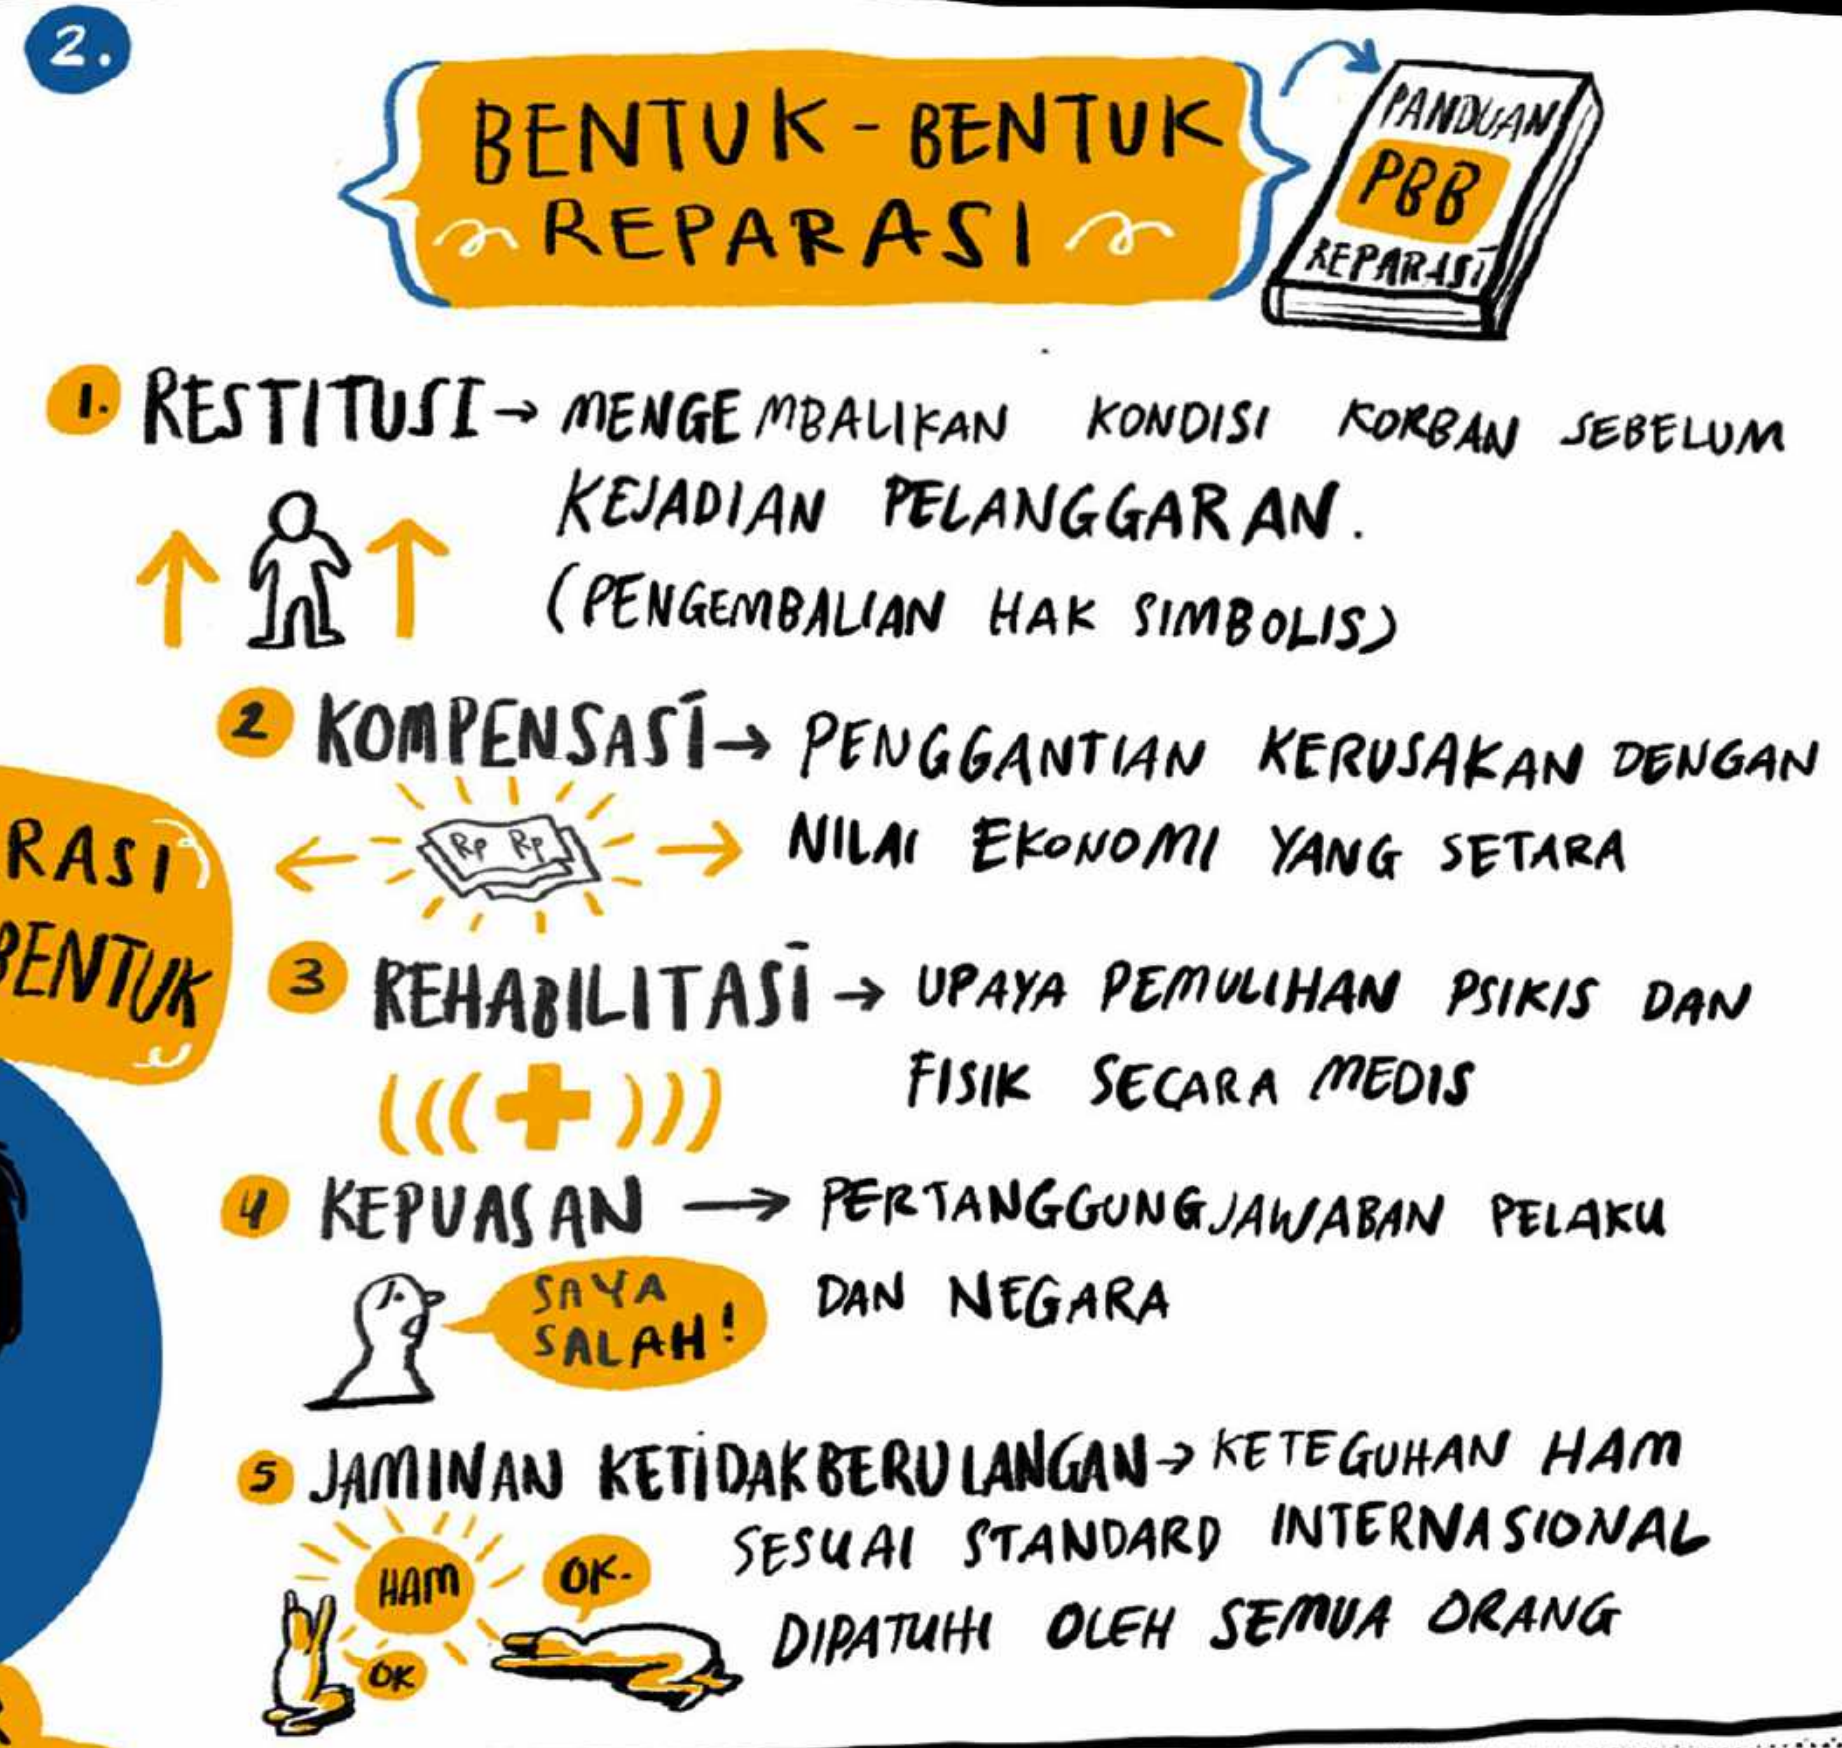 2.
BENTUK - BENTUK
REPARASI
PANDUAN
PBB
REPARASI
1. RESTITUSI → MENGEMBALIKAN KONDISI KORBAN SEBELUM
KEJADIAN PELANGGARAN.
(PENGEMBALIAN HAK SIMBOLIS)
2 KOMPENSASI → PENGGANTIAN KERUSAKAN DENGAN
NILAI EKONOMI YANG SETARA
Rp Rp
RASI
BENTUK
3 REHABILITASI → UPAYA PEMULIHAN PSIKIS DAN
FISIK SECARA MEDIS
4 KEPUASAN → PERTANGGUNGJAWABAN PELAKU
DAN NEGARA
SAYA
SALAH!
5 JAMINAN KETIDAKBERULANGAN → KETEGUHAN HAM
SESUAI STANDARD INTERNASIONAL
DIPATUHI OLEH SEMUA ORANG
HAM
OK.
OK